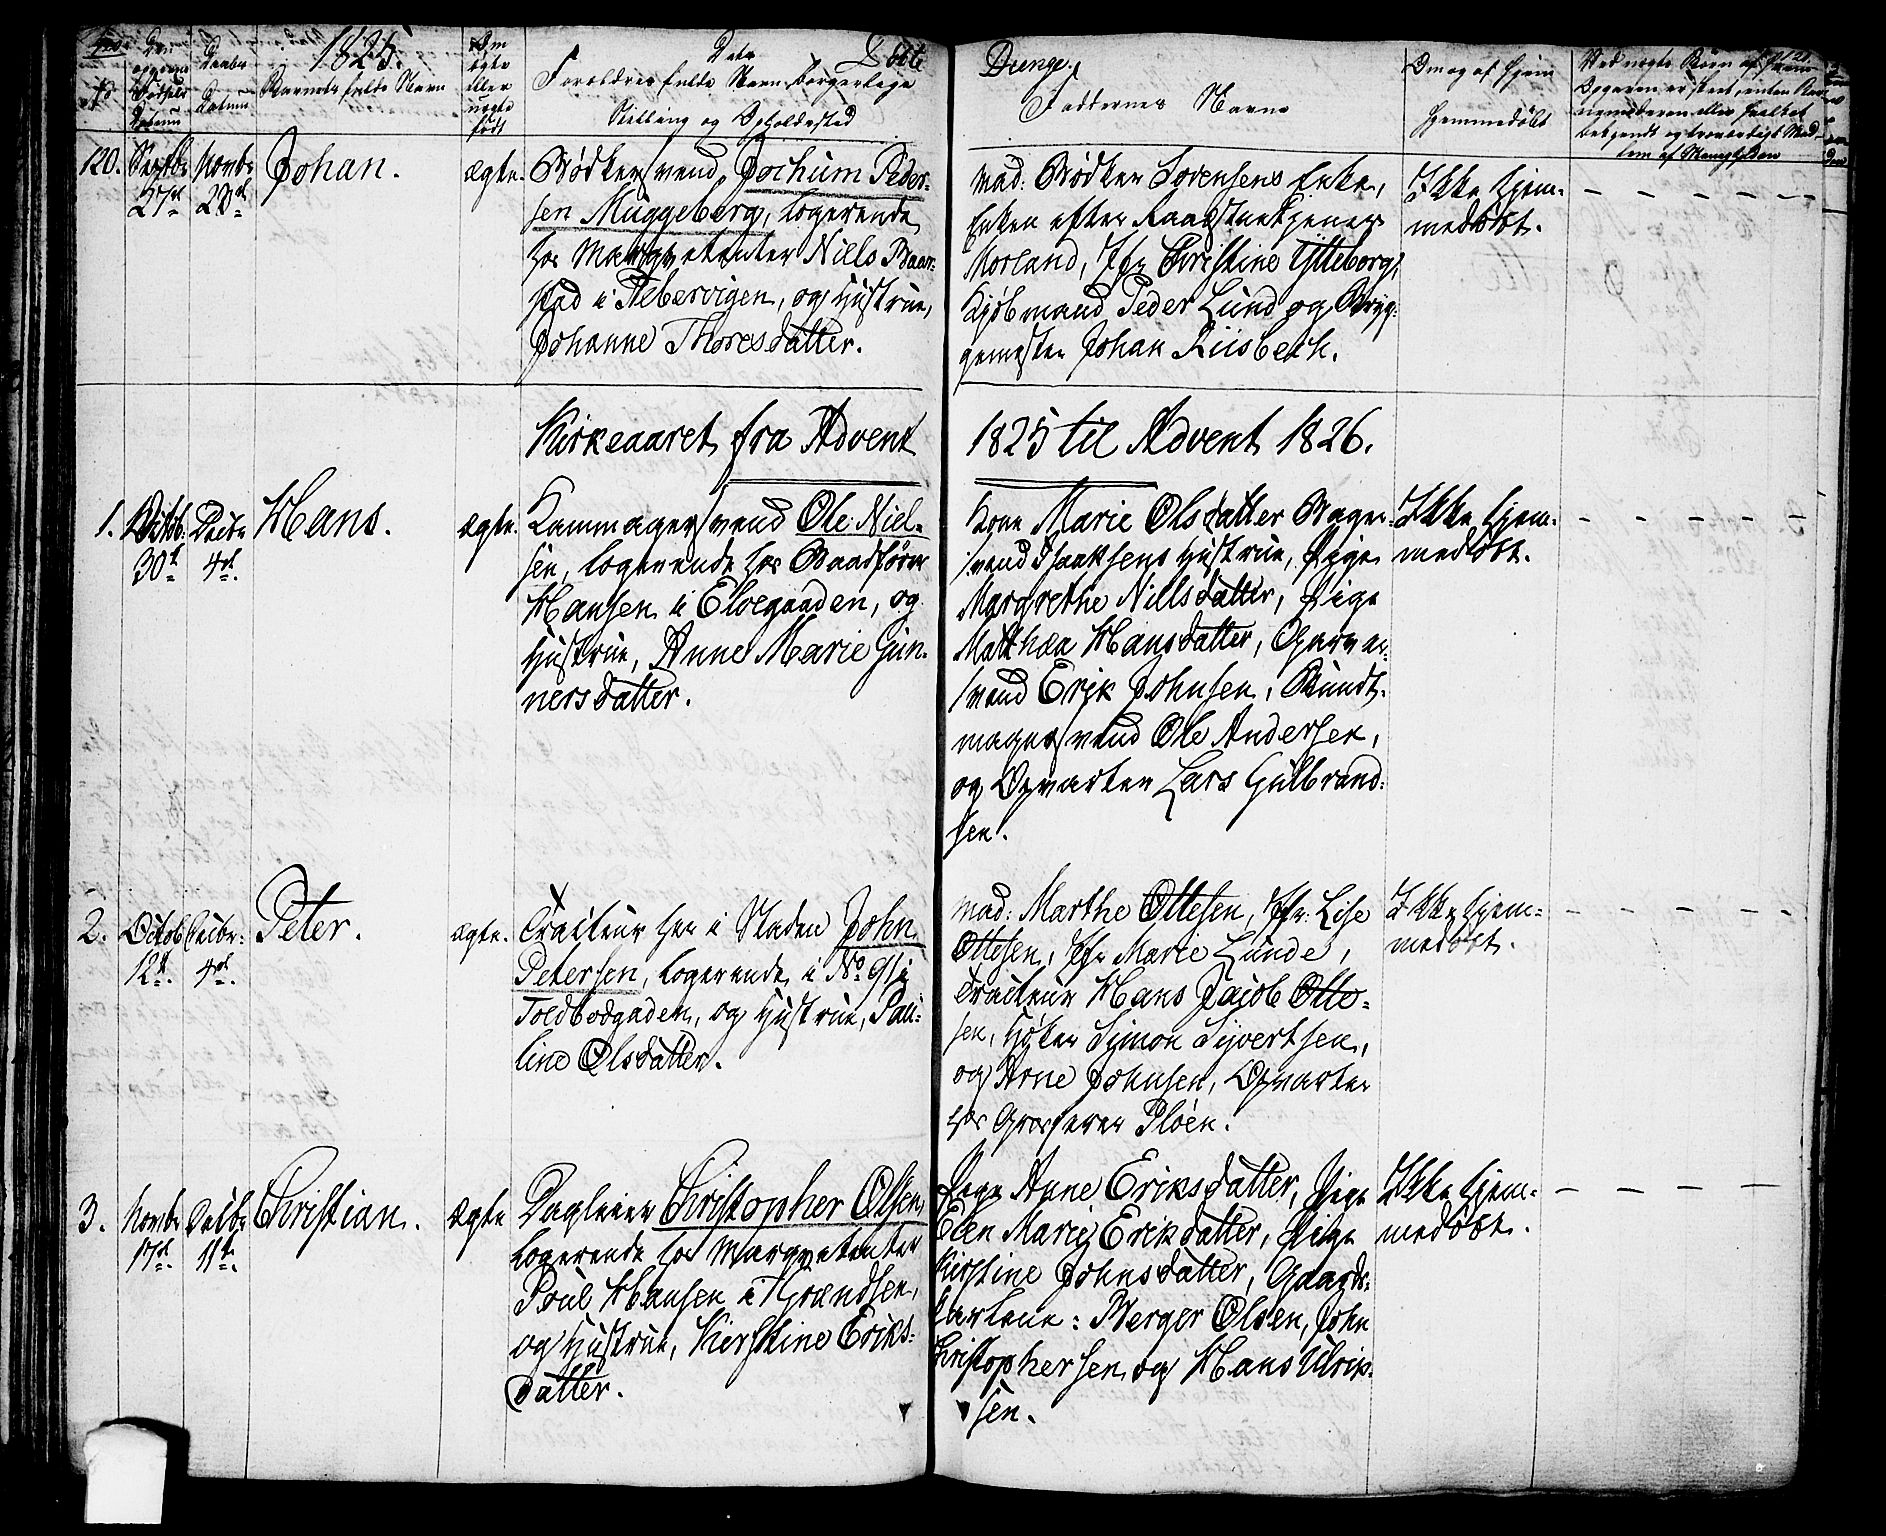 1825.
Barnets fulde Navn
Om
ægte
eller
uægte
født
Døbte
Forældres fulde Navn, Borgerlige
Stilling og Opholdssted
Drenge.
Faddernes Navne
Om og af hjem
hjemmedøbt
120.
Septbr
27d
Novbr
20d
Johan.
ægte.
Bødkersvend Jochum Peder-
sen Müggeberg, logerende
hos Marqvetenter Niels Baar-
stad i Pebervigen, og Hustrue,
Johanne Thoresdatter.
Mad: Bødker Sørensens Enke,
Enken efter Raadstuetjener
Morland, Jfr Christine Ytteborg,
Kjøbmand Peder Lund og Bryg-
gemester Johan Riisbech.
Ikke hjem-
medøbt.
Kirkeaaret fra Advent
1825 til Advent 1826.
1.
Octob:
30t
Decbr
4d.
Hans.
ægte.
Kammagersvend Ole Niel-
sen, logerende hos Baadfører
Hansen i Elvegaden, og
Hustrue, Anne Marie Gun-
nersdatter.
Kone Marie Olsdatter Bager-
svend Isaaksens Hustrue, Pige
Margrethe Nillsdatter, Pige
Matthea Hansdatter, Garver-
svend Erik Johnsen, Bundt-
magersvend Ole Andersen,
og Opvarter Lars Gulbrand-
sen.
Ikke hjem-
medøbt.
2.
Octob
12t.
Decbr.
4d.
Peter.
ægte.
Traiteur her i Staden John
Petersen, logerende i No 91 i
Toldbodgaden, og Hustrue, Pau-
line Olsdatter.
Mad: Marthe Ottesen, Jfr: Lise
Ottesen, Jfr Marie Lunde,
Traiteur Hans Jacob Otte-
sen, Høker Simon Syvertsen,
og Arne Johnsen, Opvarter
hos Grosserer Pløen.
Ikke hjem-
medøbt.
3.
Novbr
17d.
Decbr
11t.
Christian.
ægte
Dagleier Christopher Olsen,
logerende hos Marqvetenter
Poul Hansen i Grændsen,
og Hustrue, Kierstine Eriks-
datter.
Pige Anne Eriksdatter, Pige
Elen Marie Eriksdatter, Pige
Kirstine Johnsdatter, Gaards-
karlene: Berger Olsen, John
Christophersen og Hans Ulrik-
sen.
Ikke hjem-
medøbt.